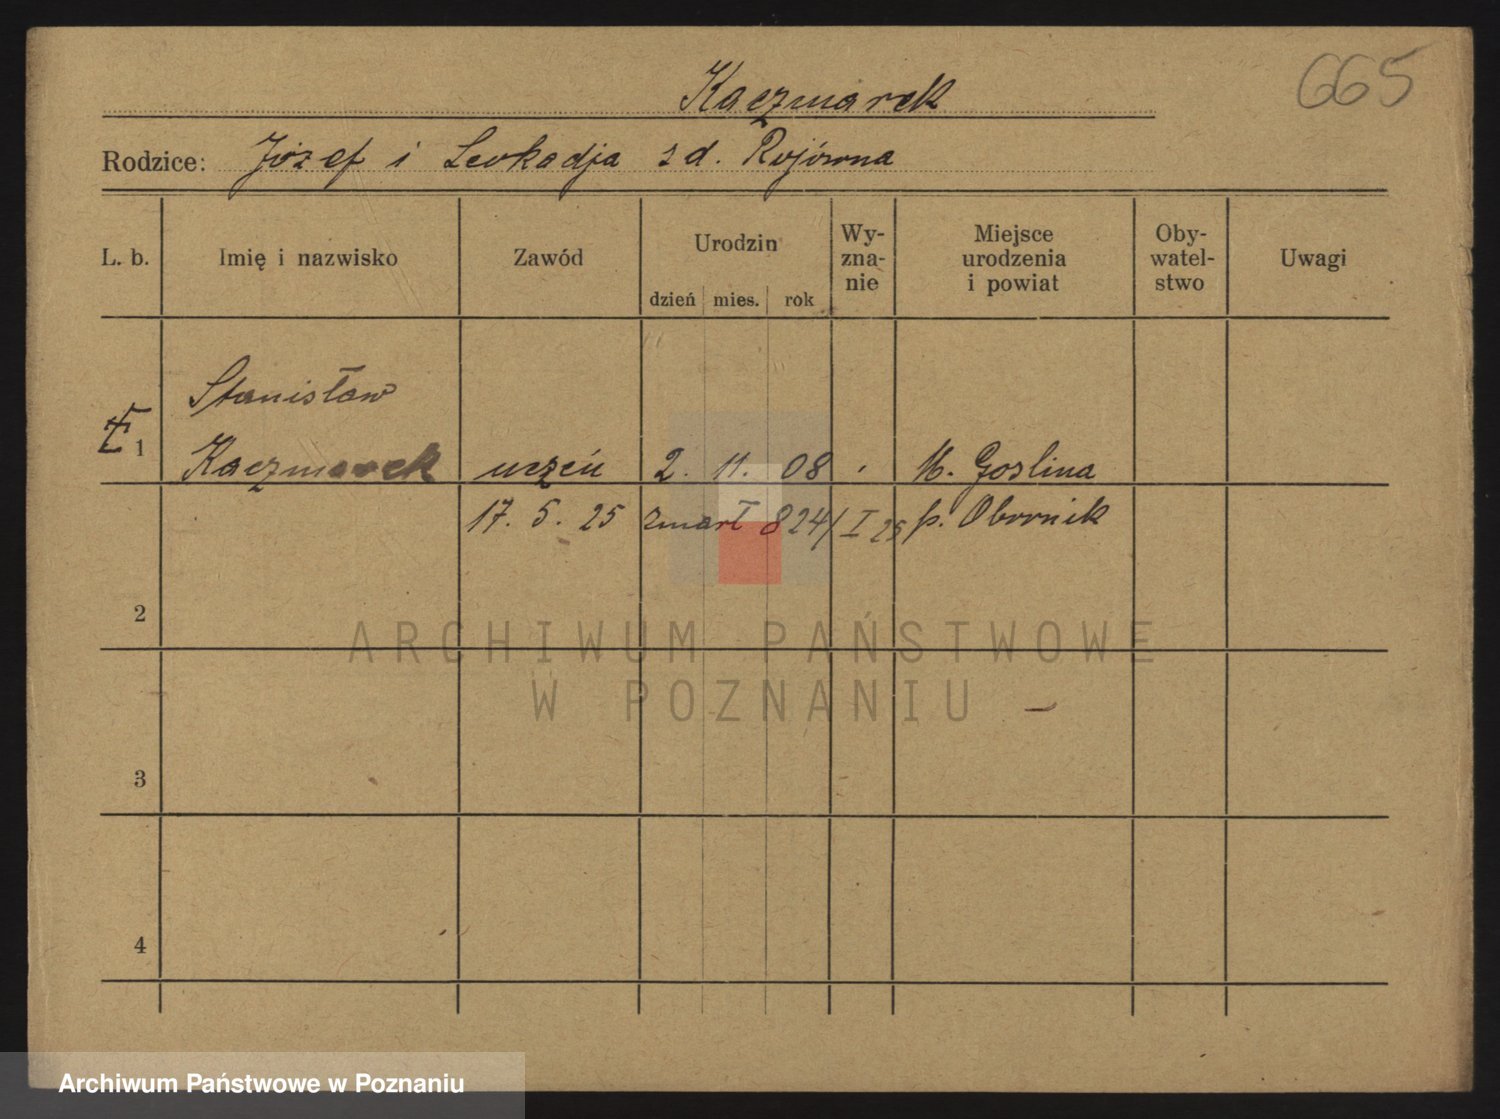 Kaczmarek
665
Rodzice: Józef i Leokadja z d. Rojówna
L. b.
Imię i nazwisko
Zawód
Urodzin
dzień mies. rok
Wy-
zna-
nie
Miejsce
urodzenia
i powiat
Oby-
watel-
stwo
Uwagi
Stanisław
1 Kaczmarek uczeń 2. 11. 08 M. Goslina
17. 5. 25 zmarł 824/I 25 p. Obornik
2
3
4
ARCHIWUM PAŃSTWOWE
W POZNANIU
Archiwum Państwowe w Poznaniu